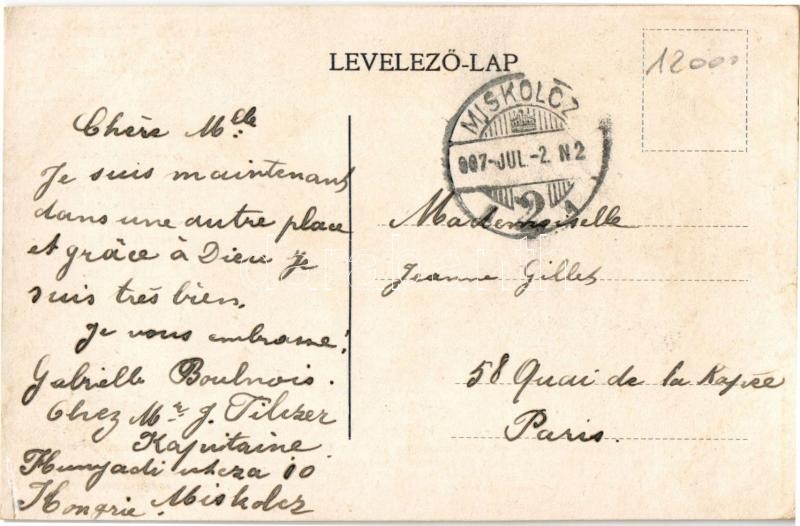 LEVELEZŐ-LAP
12000
MISKOLCZ
907-JUL.-2. N2
2
Chère Melle
Je suis maintenant
dans une autre place
et grâce à Dieu je
suis très bien.
je vous embrasse!
Gabrielle Boulnois.
Chez Mr J. Tilczer
Kapitaine
Hunyadi utcza 10
Hongrie. Miskolcz
Mademoiselle
Jeanne Gillet
58 Quai de la Rapée
Paris.